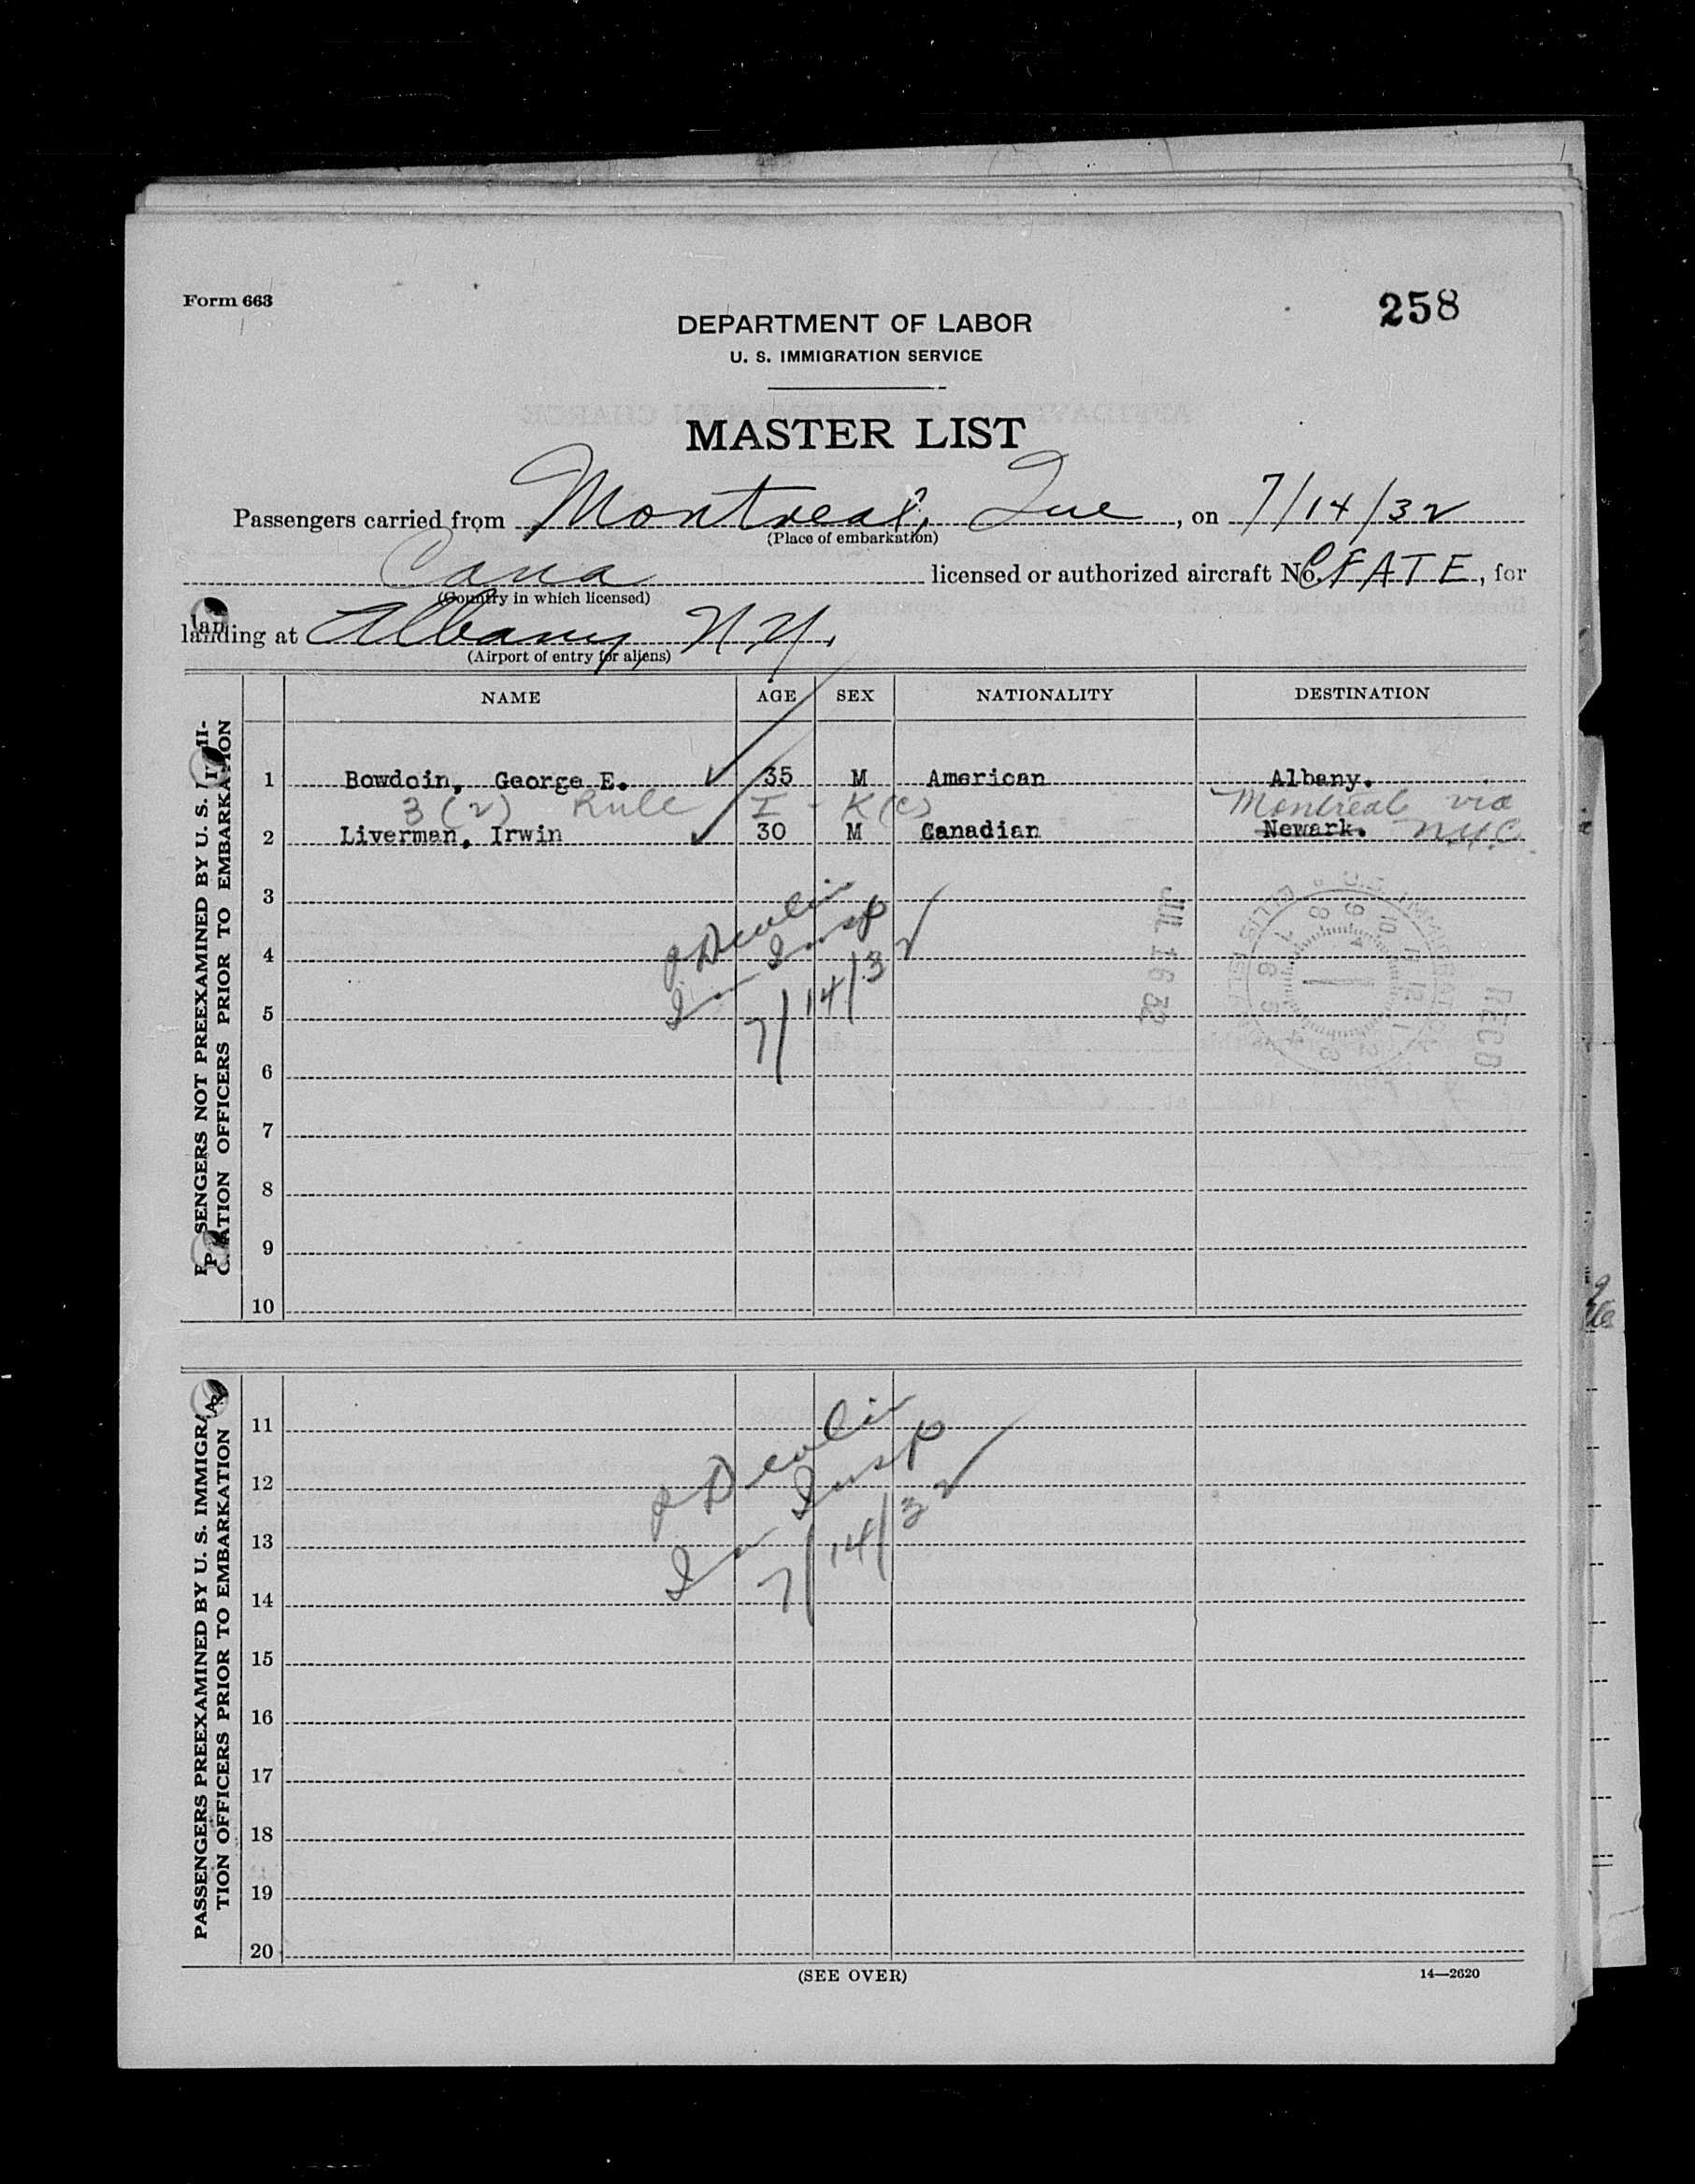 Form 663
258
DEPARTMENT OF LABOR
U. S. IMMIGRATION SERVICE
MASTER LIST
Passengers carried from Montreal, Que, on 7/14/32
(Place of embarkation)
Cana licensed or authorized aircraft No. CFATE, for
(Country in which licensed)
landing at Albany N.Y.
(Airport of entry for aliens)
NAME AGE SEX NATIONALITY DESTINATION
PASSENGERS NOT PREEXAMINED BY U. S. IMMI-
GRATION OFFICERS PRIOR TO EMBARKATION
1 Bowdoin, George E. 35 M American Albany.
3 (2) Rule I - K (c) Montreal via
2 Liverman, Irwin 30 M Canadian Newark. N.Y.C.
3
4
5
6
7
8
9
10
Insp
7/14/32
JUL 16 32
REC'D
PASSENGERS PREEXAMINED BY U. S. IMMIGRA-
TION OFFICERS PRIOR TO EMBARKATION
11
12
13
14
15
16
17
18
19
20
Insp
7/14/32
(SEE OVER)
14—2620